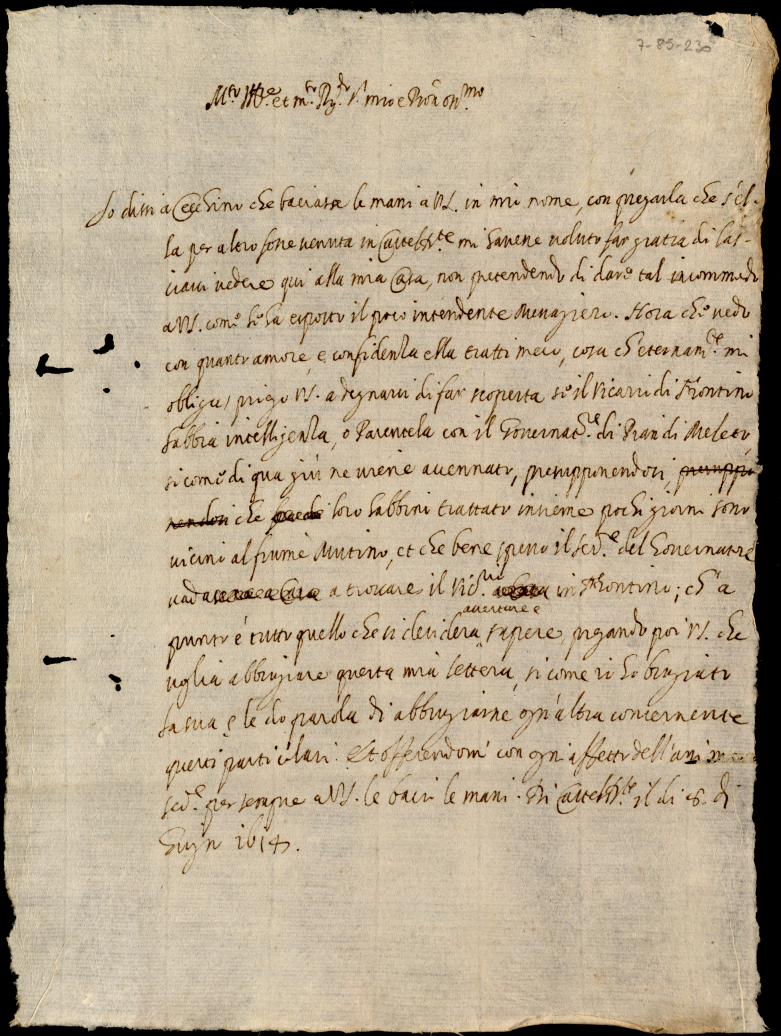 7-85-230
M.to Ill.re et m.to R.do S.r mio e P.rōn oss.mo
Io dissi a Cecchino che baciasse le mani a VS. in mio nome, con pregarla che s'el-
la per altro fosse venuta in Castelb.te mi havesse voluto far gratia di las-
ciarsi vedere qui alla mia Casa, non pretendendo di dare tal incommodo
a VS. come le ha esposto il poco intendente Messagiero. Hora che vedo
con quanto amore, e confidenza ella tratti meco, cosa ch'eternam.te mi
obliga, prego VS. a degnarsi di far scoperta se il Vicario di Frontino
habbia intelligenza, o Parentela con il Governat.re di Pian di Meleto,
si come di qua giù ne viene accennato, presupponendosi, presuppo
nendosi che loro habbino trattato insieme pochi giorni sono
vicino al fiume Mutino, et che bene spesso il ser.e del Governatore
vada a trovare il Vic.rio in Frontino; ch'a
avertire e
punto è tutto quello che si desidera sapere, pregando poi VS. che
voglia abbrugiare questa mia lettera, si come io ho brugiato
la sua, e le do parola di abbrugiarne ogn'altra concernente
questi particulari. Et offerendomi con ogni affetto dell'animo
ser.e per sempre a VS. le bacio le mani. Di Castelb.te il di 8. di
Giugn 1614.